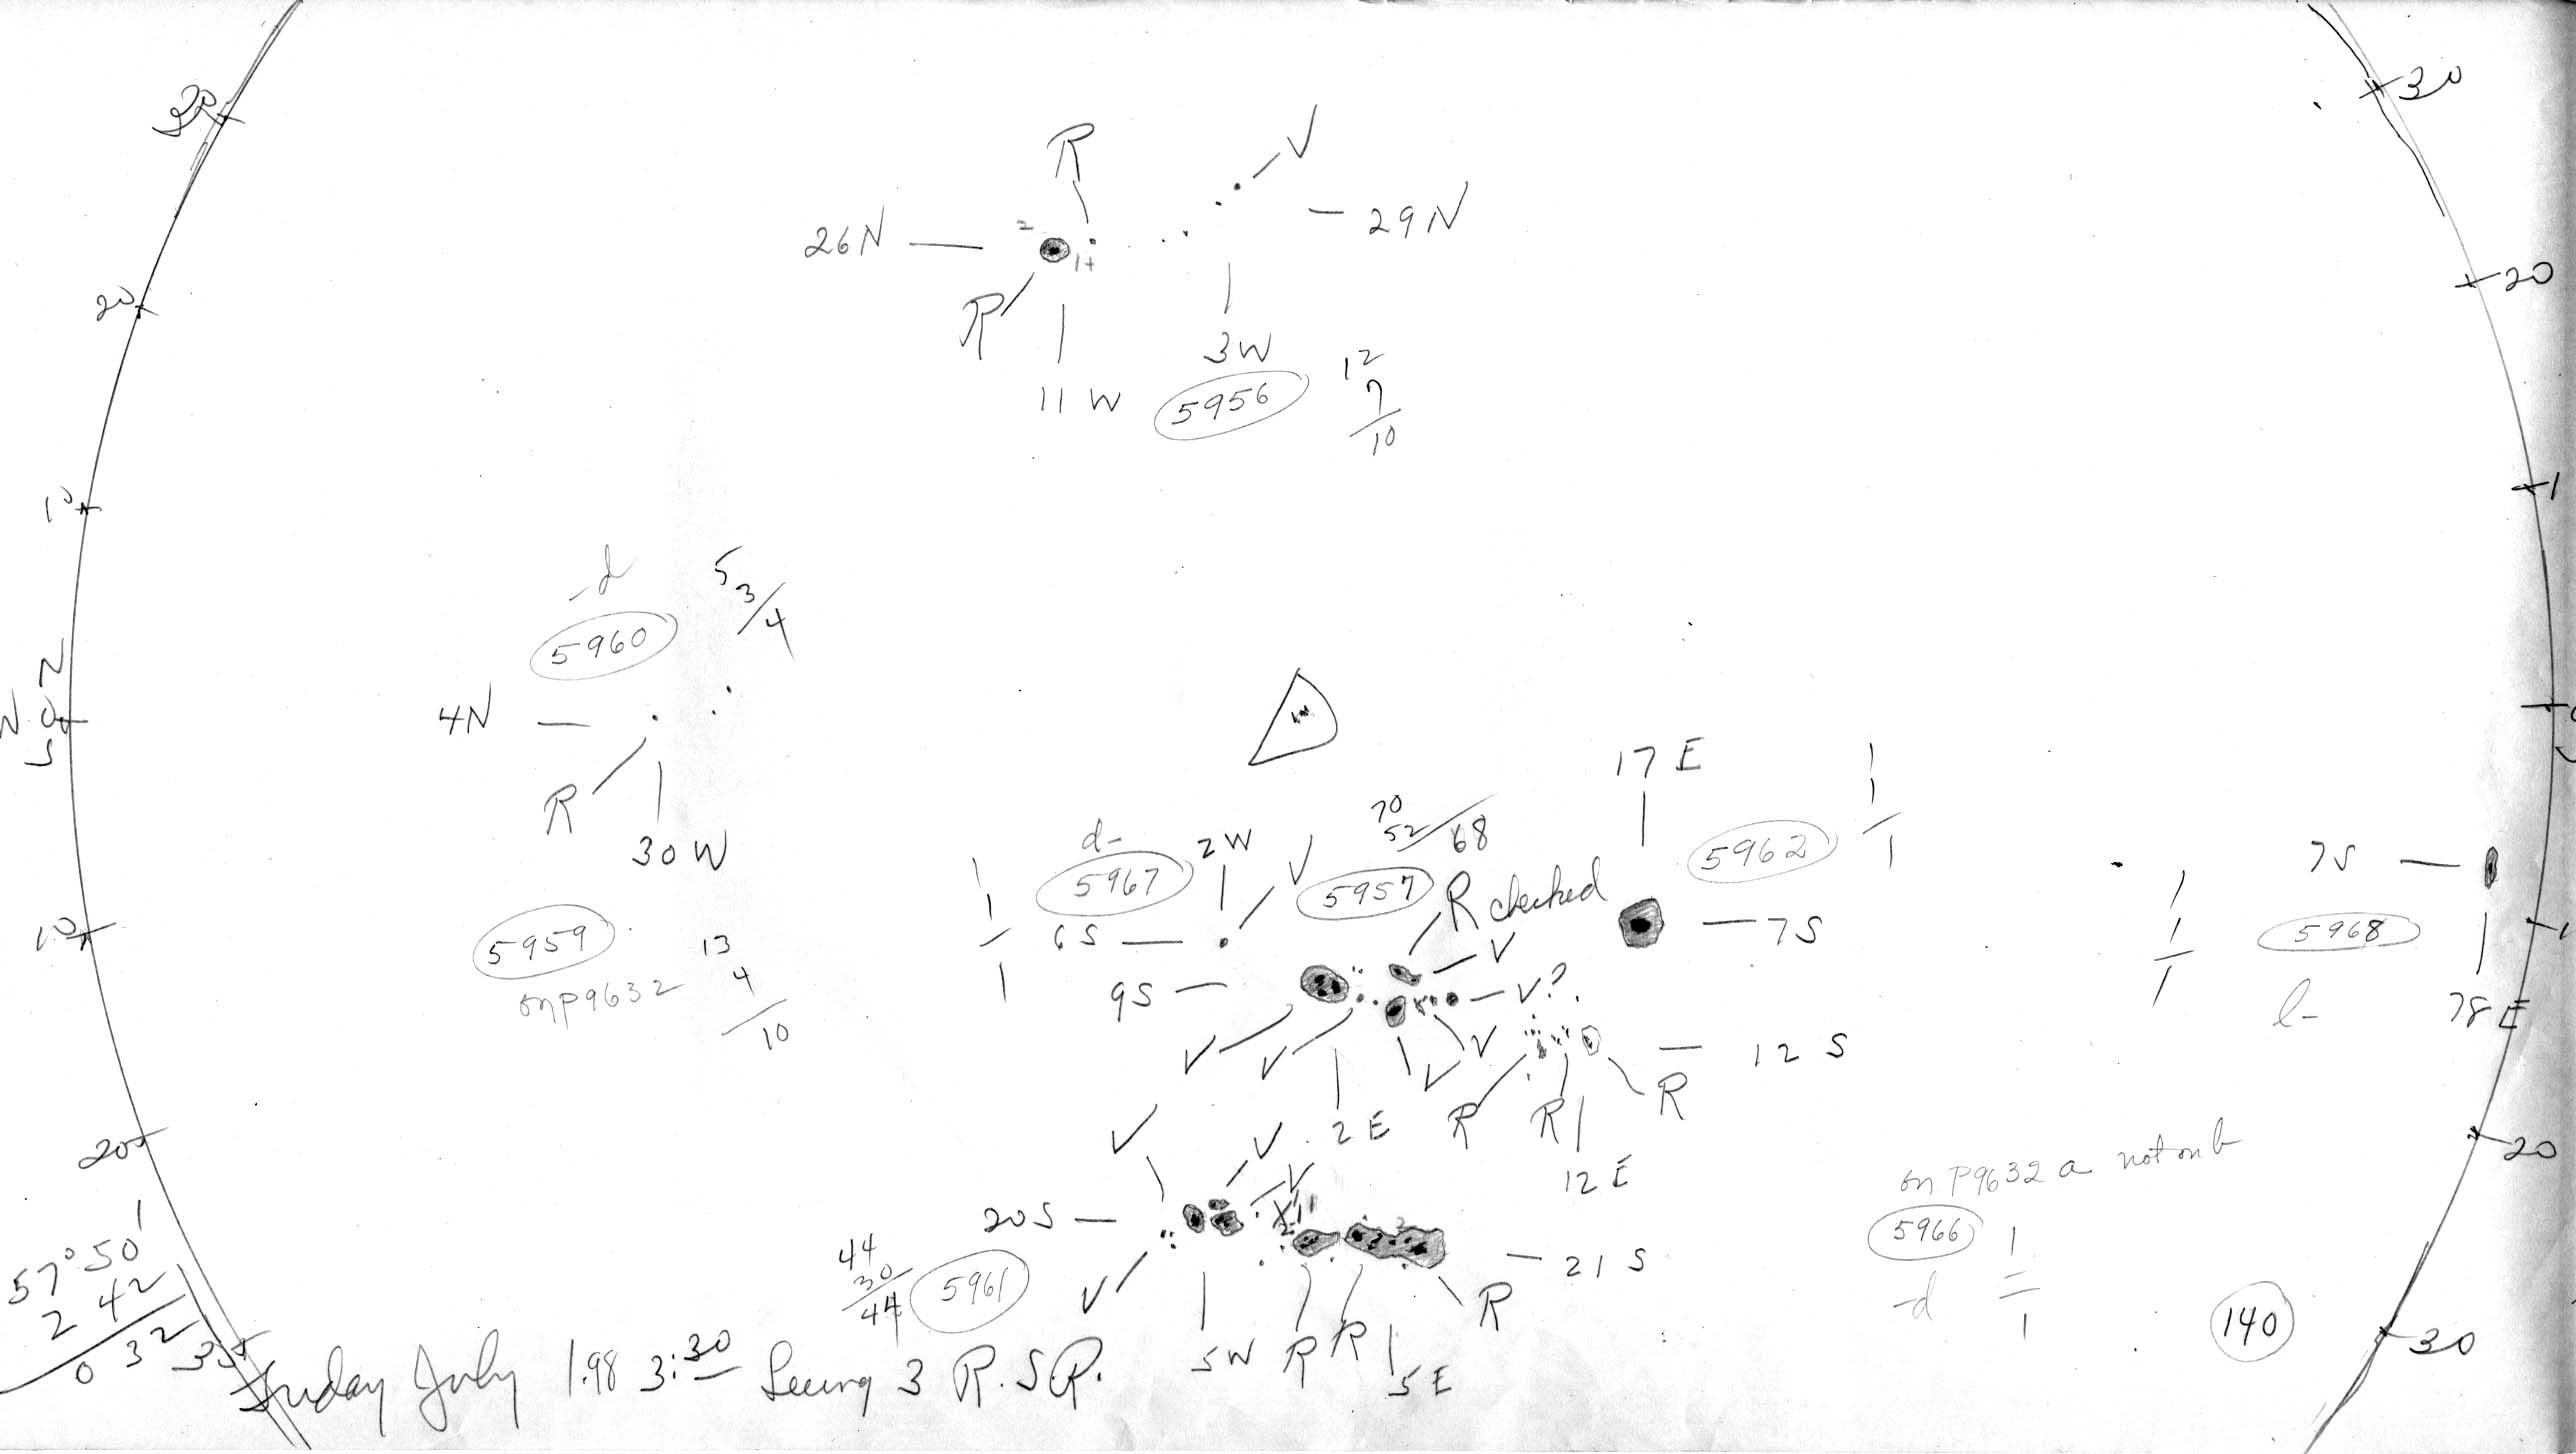 30
30
R
V
26N
2
29N
1+
R
20
20
3W
11W
5956
12
7
10
10
1
-d
5960
5
3
4
N
0
S
N
4N
R
30W
17E
5959
13
4
10
on P9632
d-
5967
1
1
1
2W
V
70
52
68
5957
R checked
5962
1
1
1
6S
V
7S
7S
9S
V?
1
1
1
5968
78E
l-
10
V
V
V
V
12S
R
R
R
2E
12E
V
V
V
20
20
on P9632 a not on b
5966
1
1
-d
20S
44
30
44
5961
V
21S
R
R
R
5W
5E
57°50'
2 42
0 32
30
30
140
Friday July 1.98 3:30 Seeing 3 R.S.R.